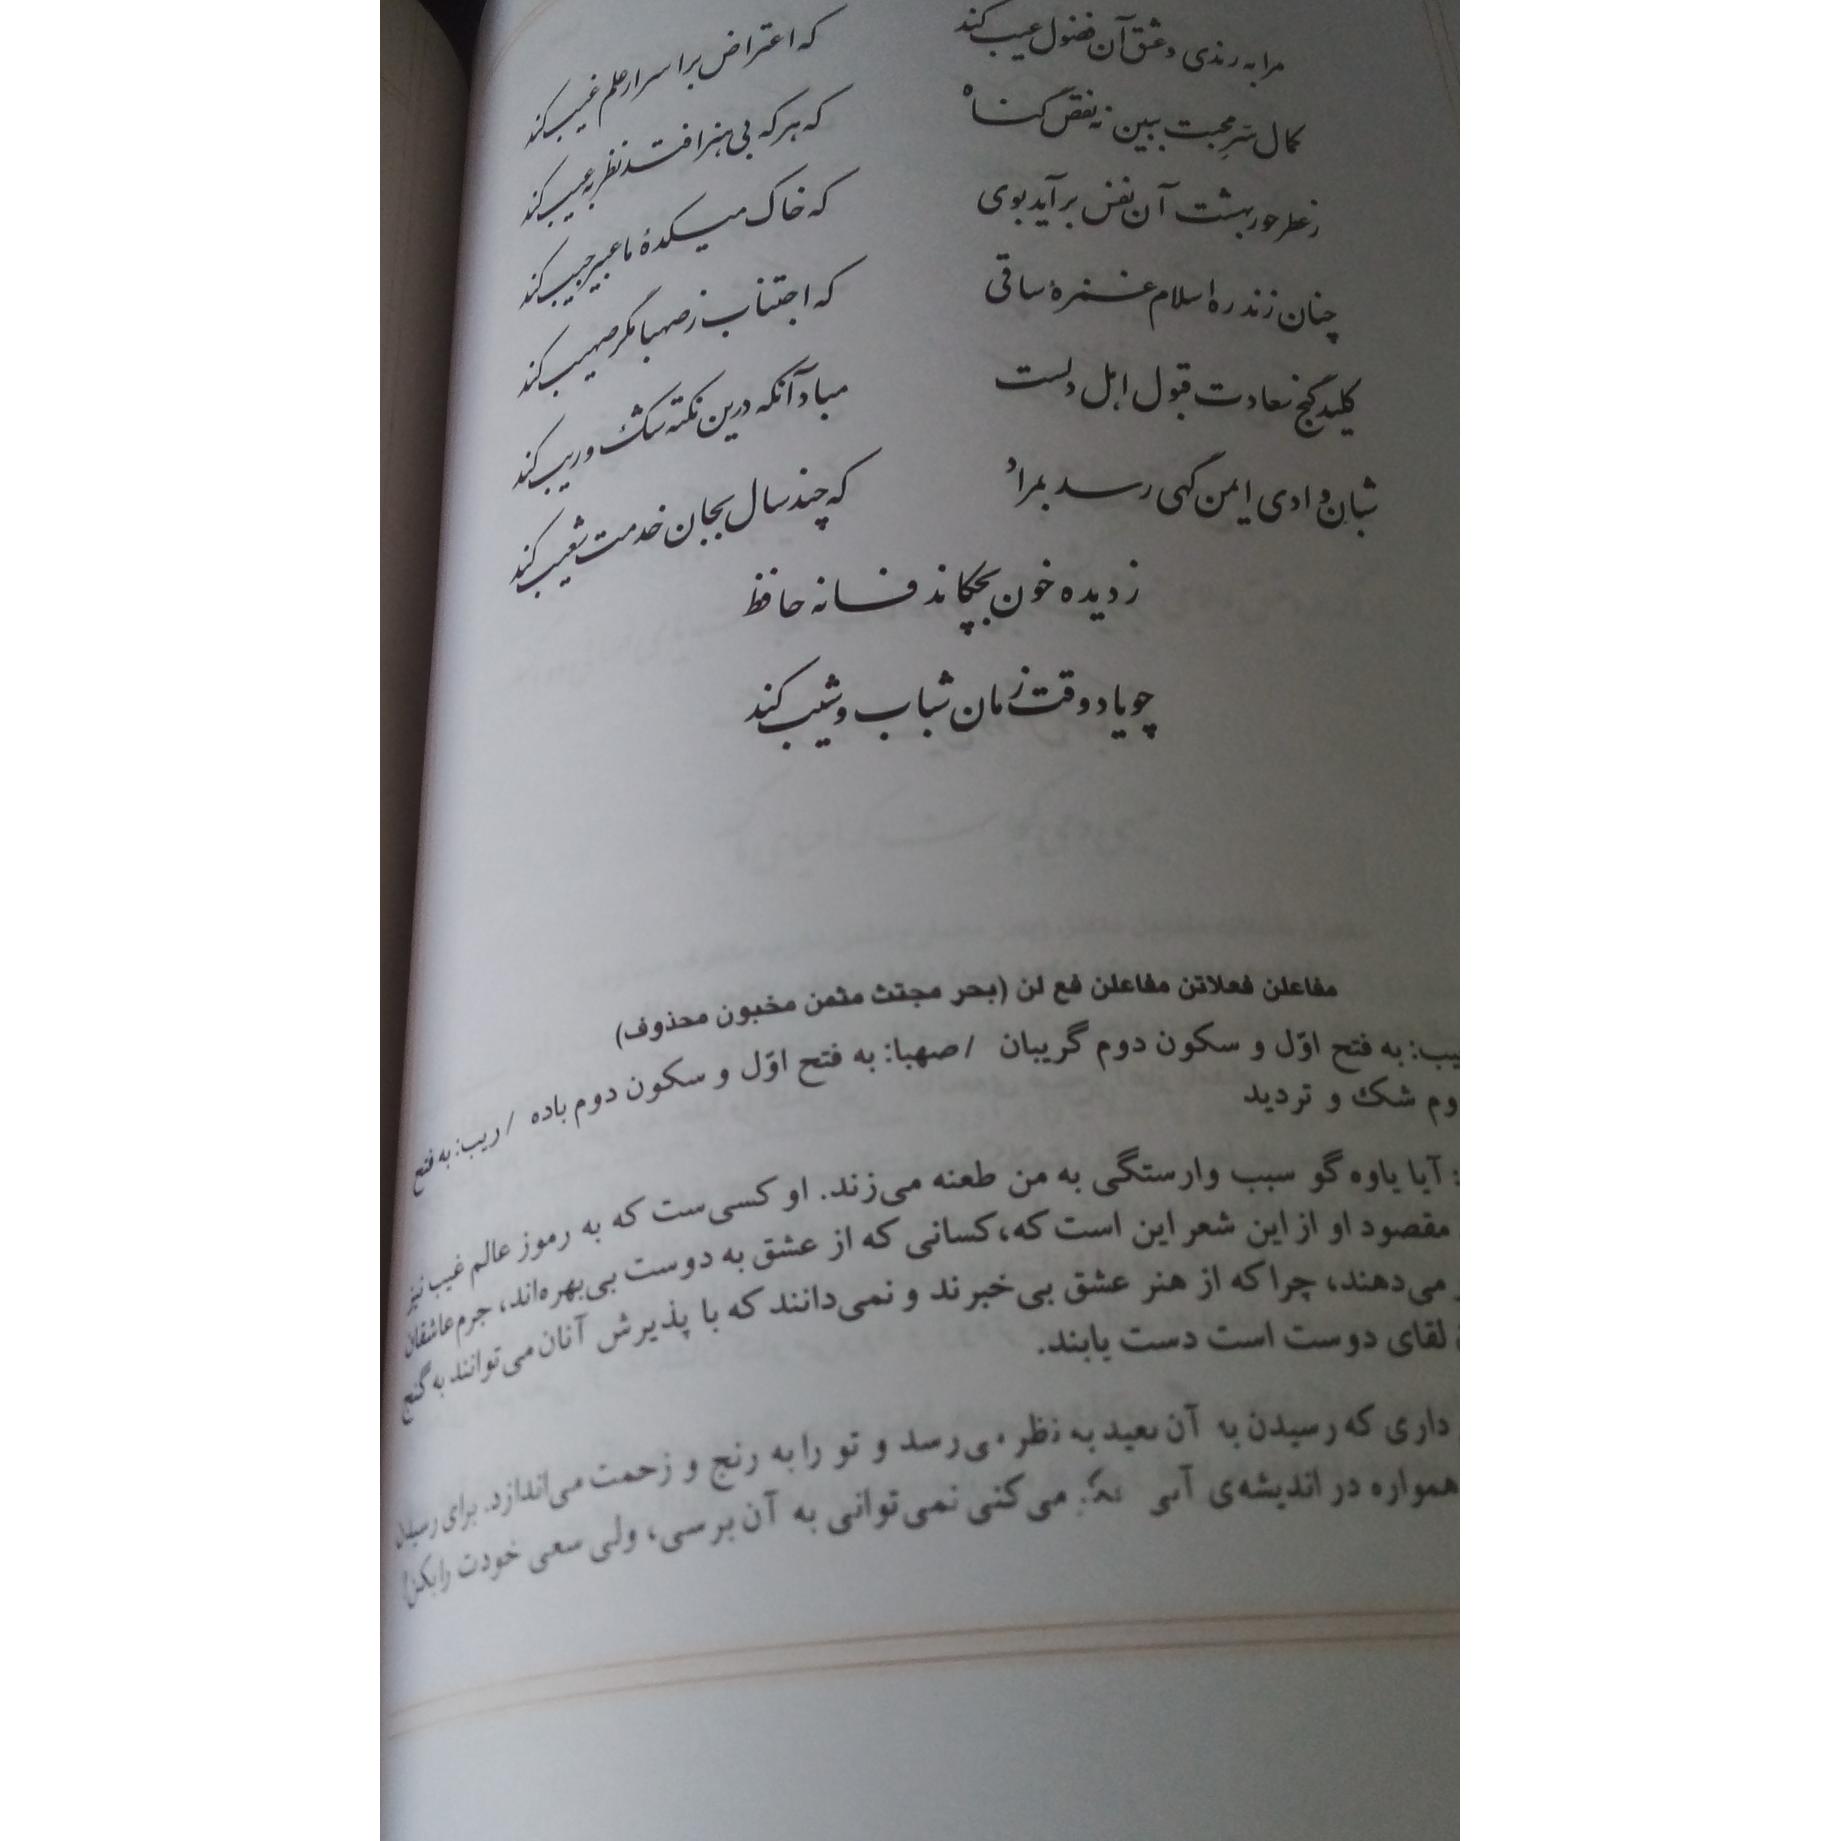 مرا به رندی و عشق آن فضول عیب کند که اعتراض بر اسرار علم غیب کند
کمال سرِّ محبت ببین نه نقص گناه که هر که بی هنر افتد نظر به عیب کند
ز عطر حور بهشت آن نفس برآید بوی که خاک میکدهٔ ما عبیر جیب کند
چنان زند ره اسلام غمزهٔ ساقی که اجتناب ز صهبا مگر صهیب کند
کلید گنج سعادت قبول اهل دلست مباد آنکه درین نکته شک و ریب کند
شبان وادی ایمن گهی رسد بمراد که چند سال بجان خدمت شعیب کند
ز دیده خون بچکاند فسانه حافظ
چو یاد وقت زمان شباب و شیب کند
مفاعلن فعلاتن مفاعلن فع لن (بحر مجتث مثمن مخبون محذوف)
یب: به فتح اوّل و سکون دوم گریبان / صهبا: به فتح اوّل و سکون دوم باده / ریب: به فتح
وم شک و تردید
: آیا یاوه‌گو سبب وارستگی به من طعنه می‌زند. او کسی‌ست که به رموز عالم غیب نیز
مقصود او از این شعر این است که، کسانی که از عشق به دوست بی‌بهره‌اند، جرم عاشقان
می‌دهند، چرا که از هنر عشق بی‌خبرند و نمی‌دانند که با پذیرش آنان می‌توانند به گنج
لقای دوست است دست یابند.
داری که رسیدن به آن بعید به نظر می‌رسد و تو را به رنج و زحمت می‌اندازد. برای رسیدن
همواره در اندیشه‌ی می‌کنی نمی‌توانی به آن برسی، ولی سعی خودت را بکن!